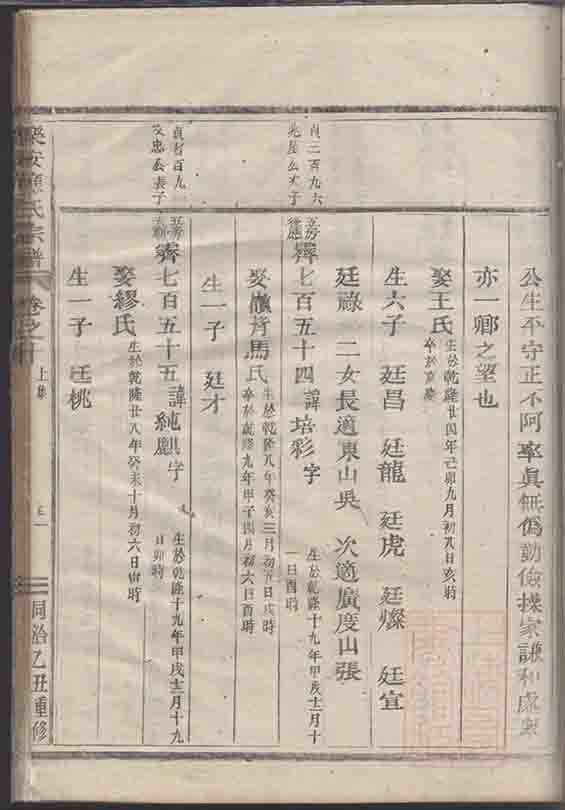 公生平守正不阿率真無偽勤儉操家謙和處眾
亦一鄉之望也
娶王氏
生於乾隆廿四年己卯九月初八日亥時
卒於
生六子 廷昌 廷龍 廷虎 廷燦 廷宜
廷祿 二女長適東山吳 次適廣度山張
貞二百九六
兆 公 子
七百五十四 諱培彩 字
生於乾隆十九年甲 十二月十
一日酉時
娶 馬氏
生於乾隆八年癸亥三月初五日戌時
卒於乾隆九年甲子四月初六日酉時
生一子 廷才
貞 百九
忠公 子
七百五十五 諱純麒 字
生於乾隆十九年甲戌十二月十九
日卯時
娶繆氏
生於乾隆廿八年癸未十月初六日 時
生一子 廷桃
樂安 氏宗譜 卷之十 上
同治乙丑重修